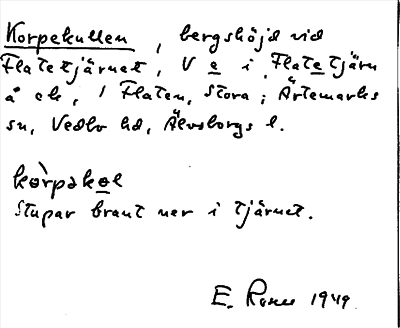 Korpekullen, bergshöjd vid
Flatetjärnet, V e i Flatetjärn
å ek, 1 Flaten, Stora; Ärtemarks
sn, Vedbo hd, Älvsborgs l.
kòrpəkəl
Stupar brant ner i tjärnet.
E. 1949